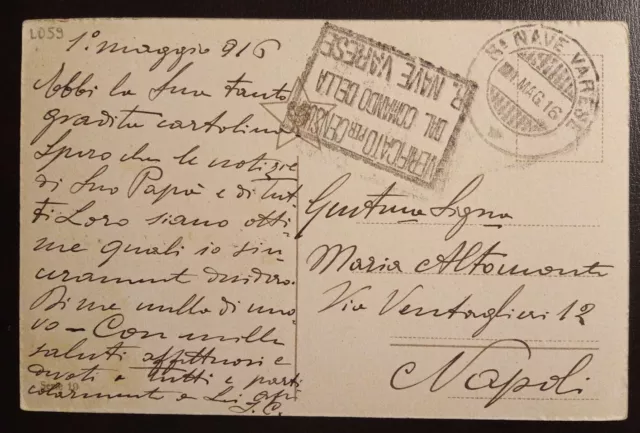 LO59
1° maggio 916
Ebbi la Sua tanto
gradita cartolina
Spero che le notizie
di Suo Papà e di tut-
ti Loro siano otti-
me quali io sin-
ceramente desidero.
Di me nulla di nuo-
vo - Con mille
saluti affettuosi e
a tutti e parti
colarmente a Lei
S.C.
Serie 10
VERIFICATO PER CENSURA
DAL COMANDO DELLA
R. NAVE VARESE
Rª NAVE VARESE
MAG. 16
Gentma Signa
Maria Altomonte
Via Ventaglieri 12
Napoli